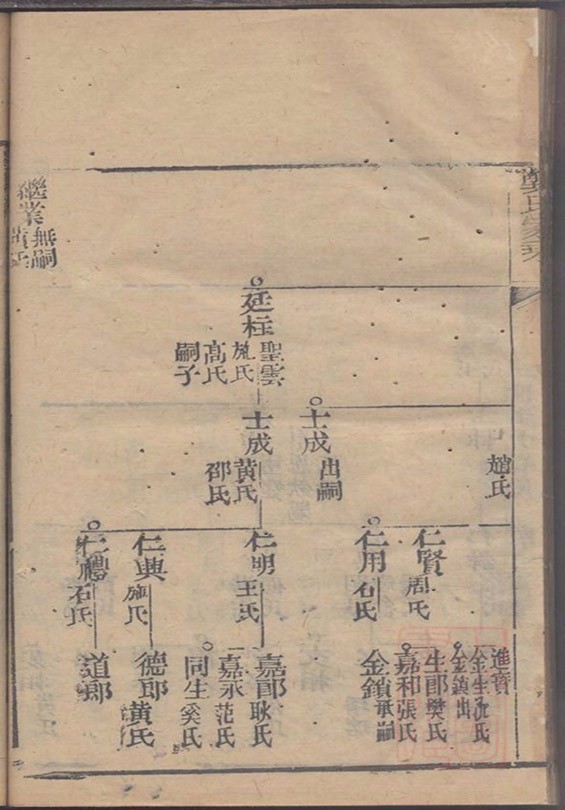 趙氏
士成
出嗣
廷柱
聖雲
施氏
高氏
嗣子
士成
黄氏
邵氏
繼業
無嗣
仁賢
周氏
仁用
石氏
仁明
王氏
仁典
施氏
仁禮
石氏
進寶
金生
金鎮出
生郎樊氏
嘉和張氏
金鎖承嗣
嘉郎耿氏
嘉永范氏
同生奚氏
德郎黄氏
道郷